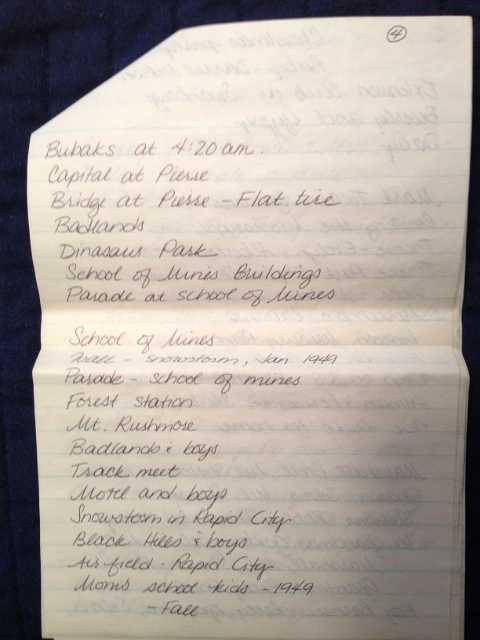 ④
Bubaks at 4:20 am.
Capital at Pierre
Bridge at Pierre - Flat tire
Badlands
Dinasaur Park
School of Mines Buildings
Parade at school of Mines
School of Mines
- snowstorm, Jan 1949
Parade - school of mines
Forest station
Mt. Rushmore
Badlands & boys
Track meet
Motel and boys
Snowstorm in Rapid City
Black Hills & boys
Air field - Rapid City
Mom's school kids - 1949
- Fall